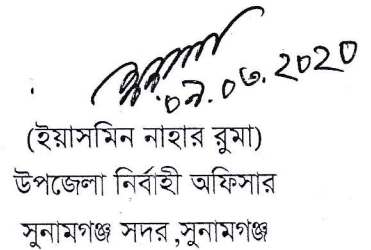 ০৯.০৩.২০২০
(ইয়াসমিন নাহার রুমা)
উপজেলা নির্বাহী অফিসার
সুনামগঞ্জ সদর ,সুনামগঞ্জ